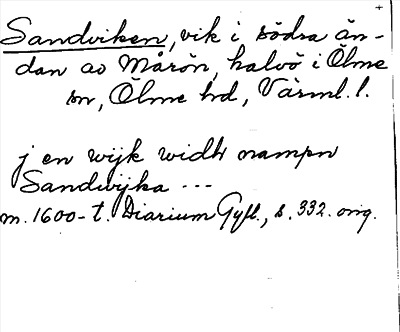 Sandviken, vik i södra än-
dan av Mårön, halvö i Ölme
sn, Ölme hd, Värml. l.
j en wijk widh nampn
Sandwijka ---
m. 1600-t. Diarium Gyll., s. 332. orig.